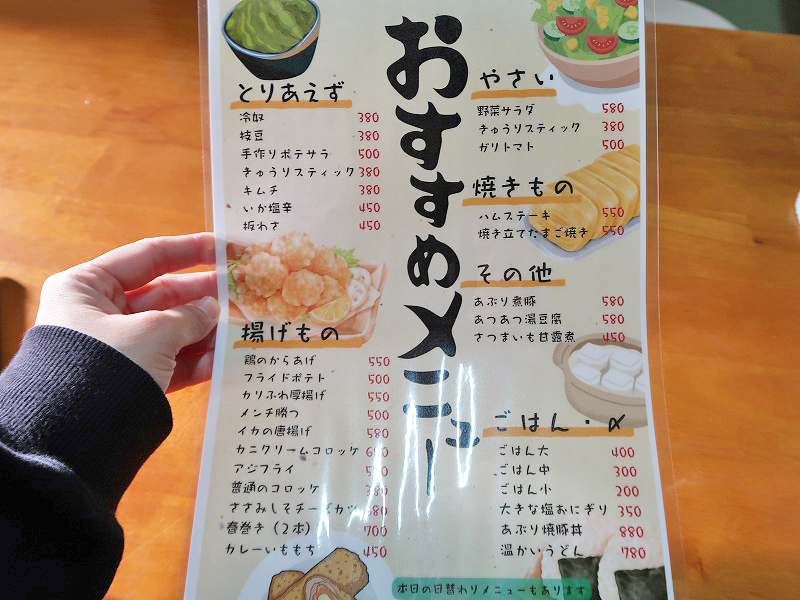 おすすめメニュー
とりあえず
冷奴 380
枝豆 380
手作りポテサラ 500
きゅうりスティック 380
キムチ 380
いか塩辛 450
板わさ 450
揚げもの
鶏のからあげ 550
フライドポテト 500
カリふわ厚揚げ 550
メンチ勝つ 500
イカの唐揚げ 580
カニクリームコロッケ
アジフライ
普通のコロッケ 380
ささみしそチーズカツ
春巻き（2本） 700
カレーいももち 450
やさい
野菜サラダ 580
きゅうりスティック 380
ガリトマト 500
焼きもの
ハムステーキ 550
焼き立てたまご焼き 550
その他
あぶり煮豚 580
あつあつ湯豆腐 580
さつまいも甘露煮 450
ごはん・〆
ごはん大 400
ごはん中 300
ごはん小 200
大きな塩おにぎり 350
あぶり焼豚丼 880
温かいうどん 780
本日の日替わりメニューもあります